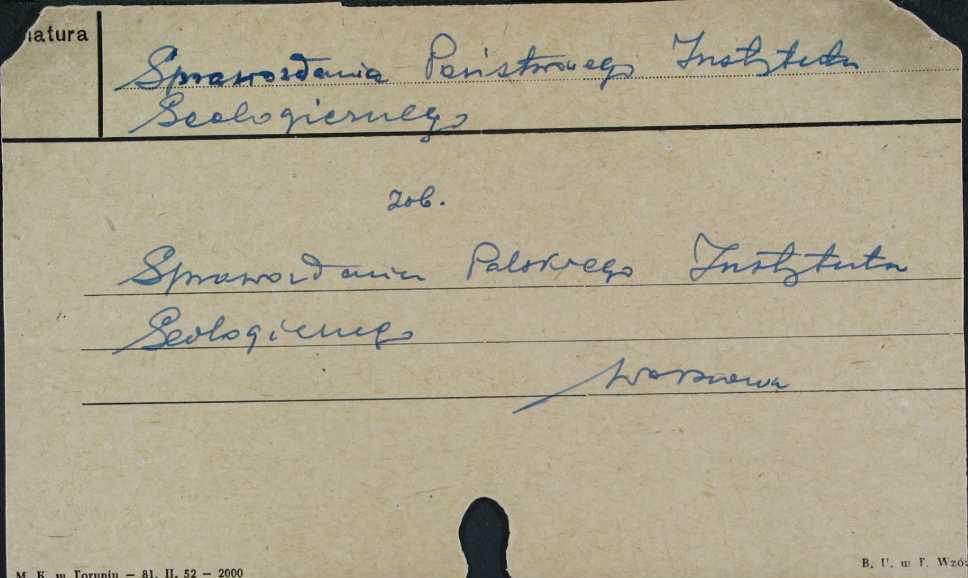 natura
Sprawozdania Państwowego Instytutu
Geologicznego
zob.
Sprawozdania Polskiego Instytutu
Geologicznego
Warszawa
M. K. w Toruniu — 81. II. 52 — 2000
B. U. w T. Wzór